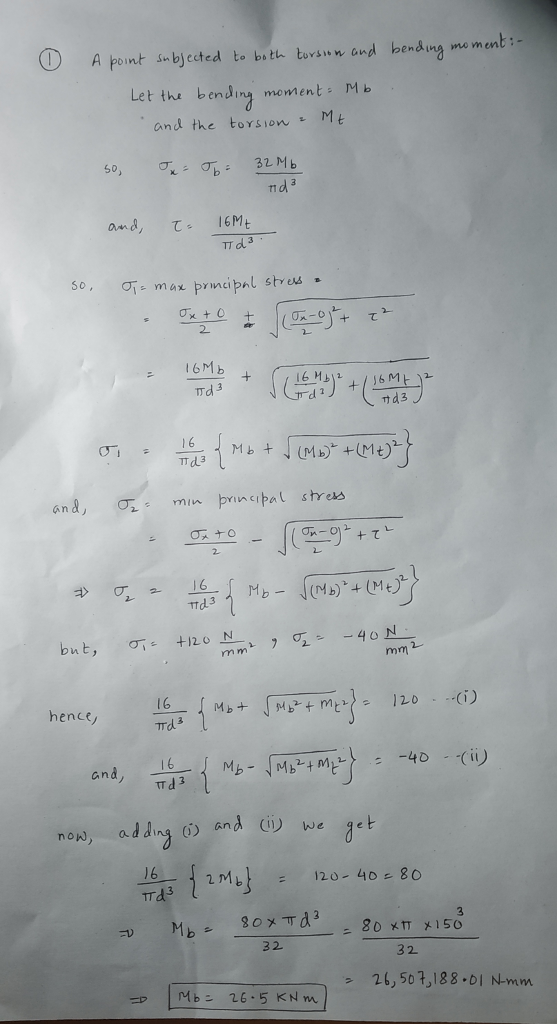 ① A point subjected to both torsion and bending moment :-
Let the bending moment = Mb
and the torsion = Mt
so, σx = σb = 32 Mb / πd³
and, τ = 16Mt / πd³
so, σ1 = max principal stress =
= (σx + 0)/2 ± √(((σx - 0)/2)² + τ²)
= 16Mb/πd³ + √((16 Mb/πd³)² + (16Mt/πd3)²)
σ1 = 16/πd3 { Mb + √((Mb)² + (Mt)²) }
and, σ2 = min principal stress
= (σx + 0)/2 - √(((σx - 0)/2)² + τ²)
⇒ σ2 = 16/πd3 { Mb - √((Mb)² + (Mt)²) }
but, σ1 = +120 N/mm², σ2 = -40 N/mm2
hence, 16/πd3 { Mb + √(Mb² + Mt²) } = 120 ---(i)
and, 16/πd3 { Mb - √(Mb² + Mt²) } = -40 --(ii)
now, adding (i) and (ii) we get
16/πd3 { 2Mb } = 120 - 40 = 80
⇒ Mb = 80 × πd³ / 32 = 80 × π × 150³ / 32
= 26,507,188.01 N-mm
⇒ Mb = 26.5 KNm